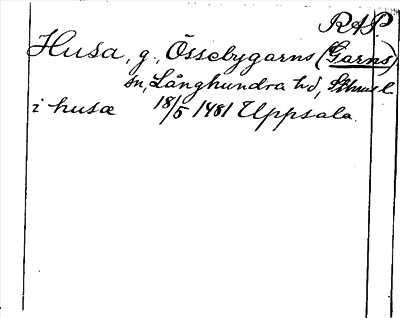 RAP.
Husa, g., Össebygarns (Garns)
sn, Långhundra hd, Sthms l.
i husæ 18/5 1481 Uppsala.